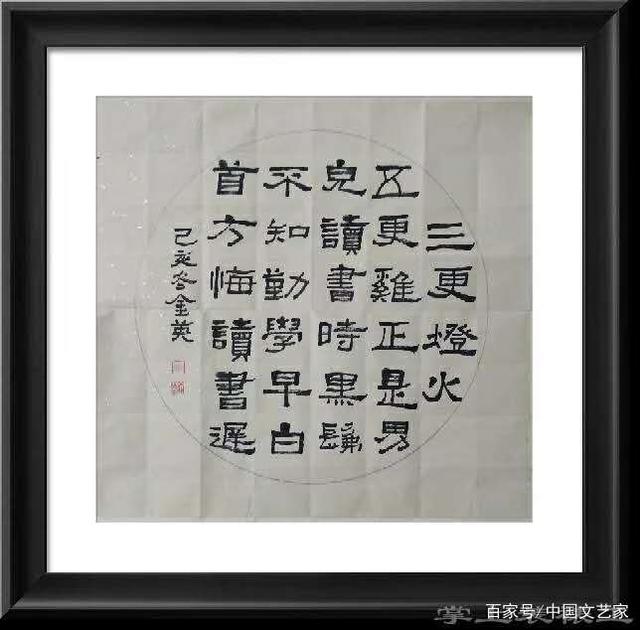 三更燈火
五更雞正是男
兒讀書時黑髮
不知勤學早白
首方悔讀書遲
己亥冬金英
百家号/中国文艺家